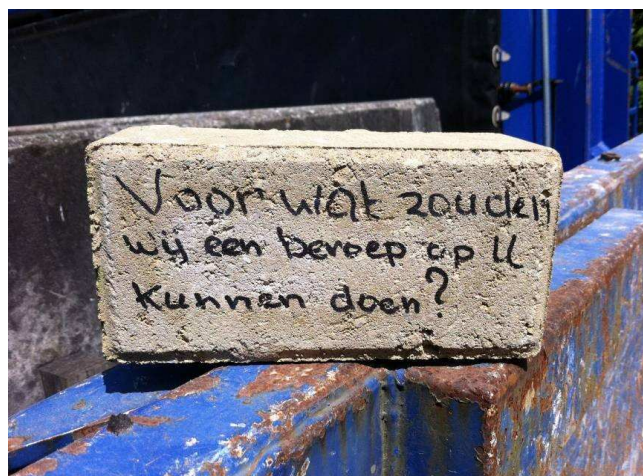 Voor wat zouden
wij een beroep op U
kunnen doen?